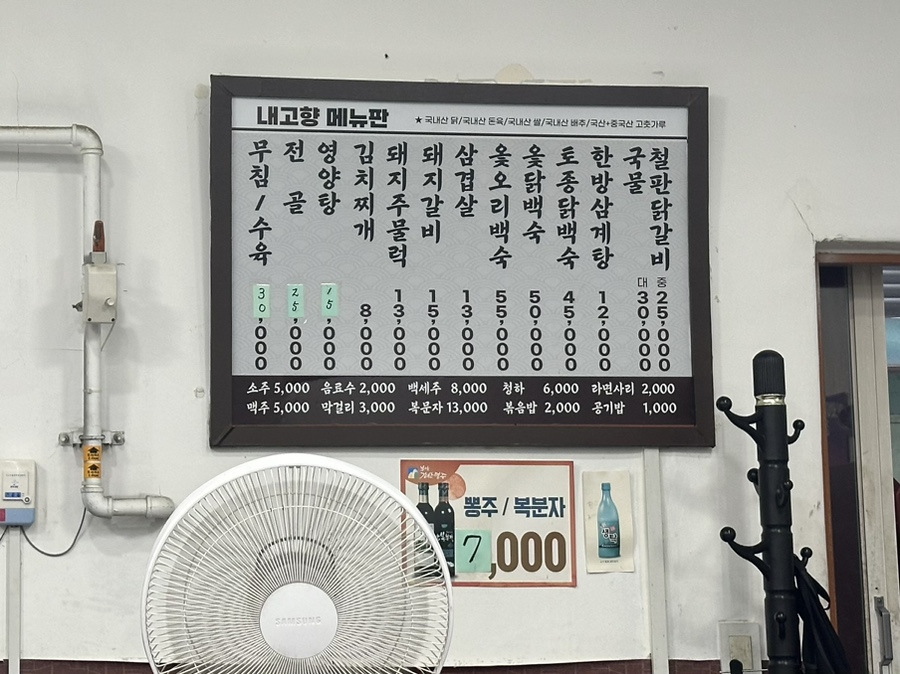 내고향 메뉴판
★ 국내산 닭/국내산 돈육/국내산 쌀/국내산 배추/국산+중국산 고춧가루
철판닭갈비 국물 대 30,000 중 25,000
한방삼계탕 12,000
토종닭백숙 45,000
옻닭백숙 50,000
옻오리백숙 55,000
삼겹살 13,000
돼지갈비 15,000
돼지주물럭 13,000
김치찌개 8,000
영양탕 15,000
전골 25,000
무침/수육 30,000
소주 5,000 음료수 2,000 백세주 8,000 청하 6,000 라면사리 2,000
맥주 5,000 막걸리 3,000 복분자 13,000 볶음밥 2,000 공기밥 1,000
뽕주 / 복분자
7,000
SAMSUNG